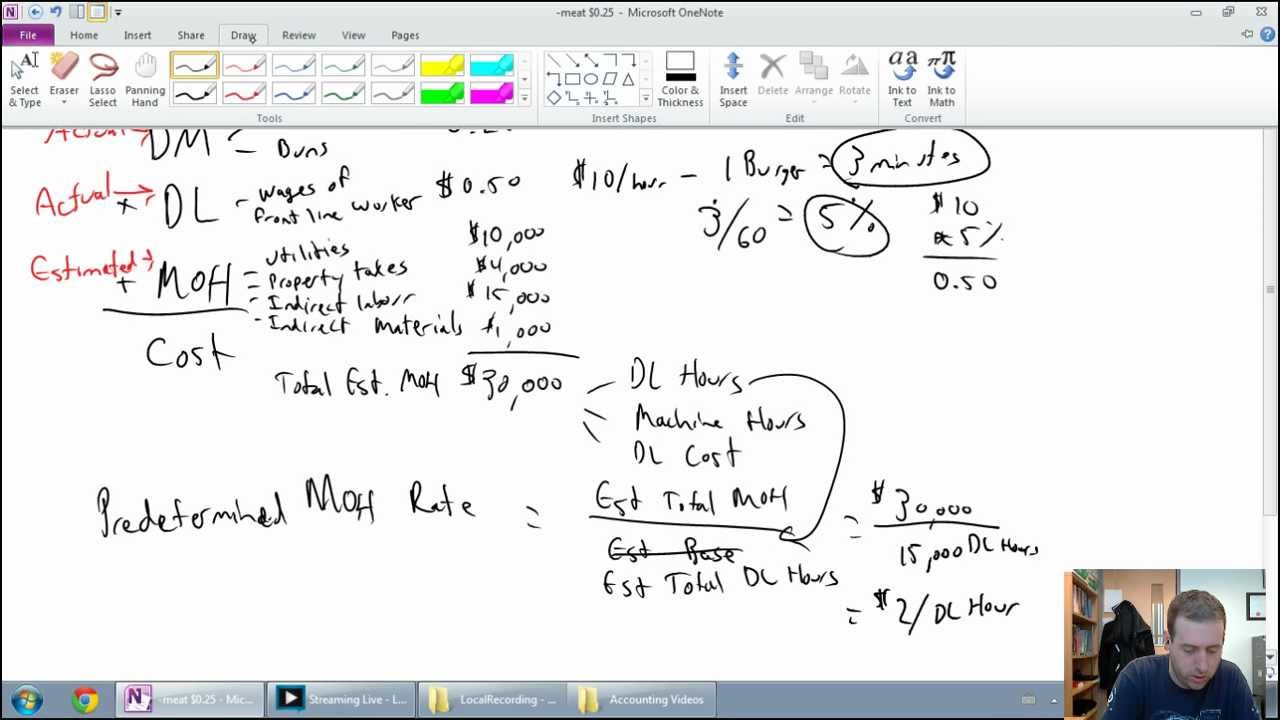 -meat $0.25 - Microsoft OneNote
File Home Insert Share Draw Review View Pages
Select & Type
Eraser
Lasso Select
Panning Hand
Color & Thickness
Insert Space
Delete
Arrange
Rotate
Ink to Text
Ink to Math
Tools
Insert Shapes
Edit
Convert
Actual
DM - Buns
Actual + DL - wages of front line worker $0.50
$10/hour - 1 Burger = 3 minutes
3/60 = 5%
$10
x 5%
0.50
Estimated + MOH
- utilities $10,000
- Property taxes $4,000
- Indirect labour $15,000
- Indirect materials $1,000
Cost
Total Est. MOH $30,000
DL Hours
Machine Hours
DL Cost
Predetermined MOH Rate = Est Total MOH = $30,000
Est Base
Est Total DL Hours
15,000 DL Hours
= $2/DL Hour
-meat $0.25 - Mic...
Streaming Live - L...
LocalRecording - ...
Accounting Videos